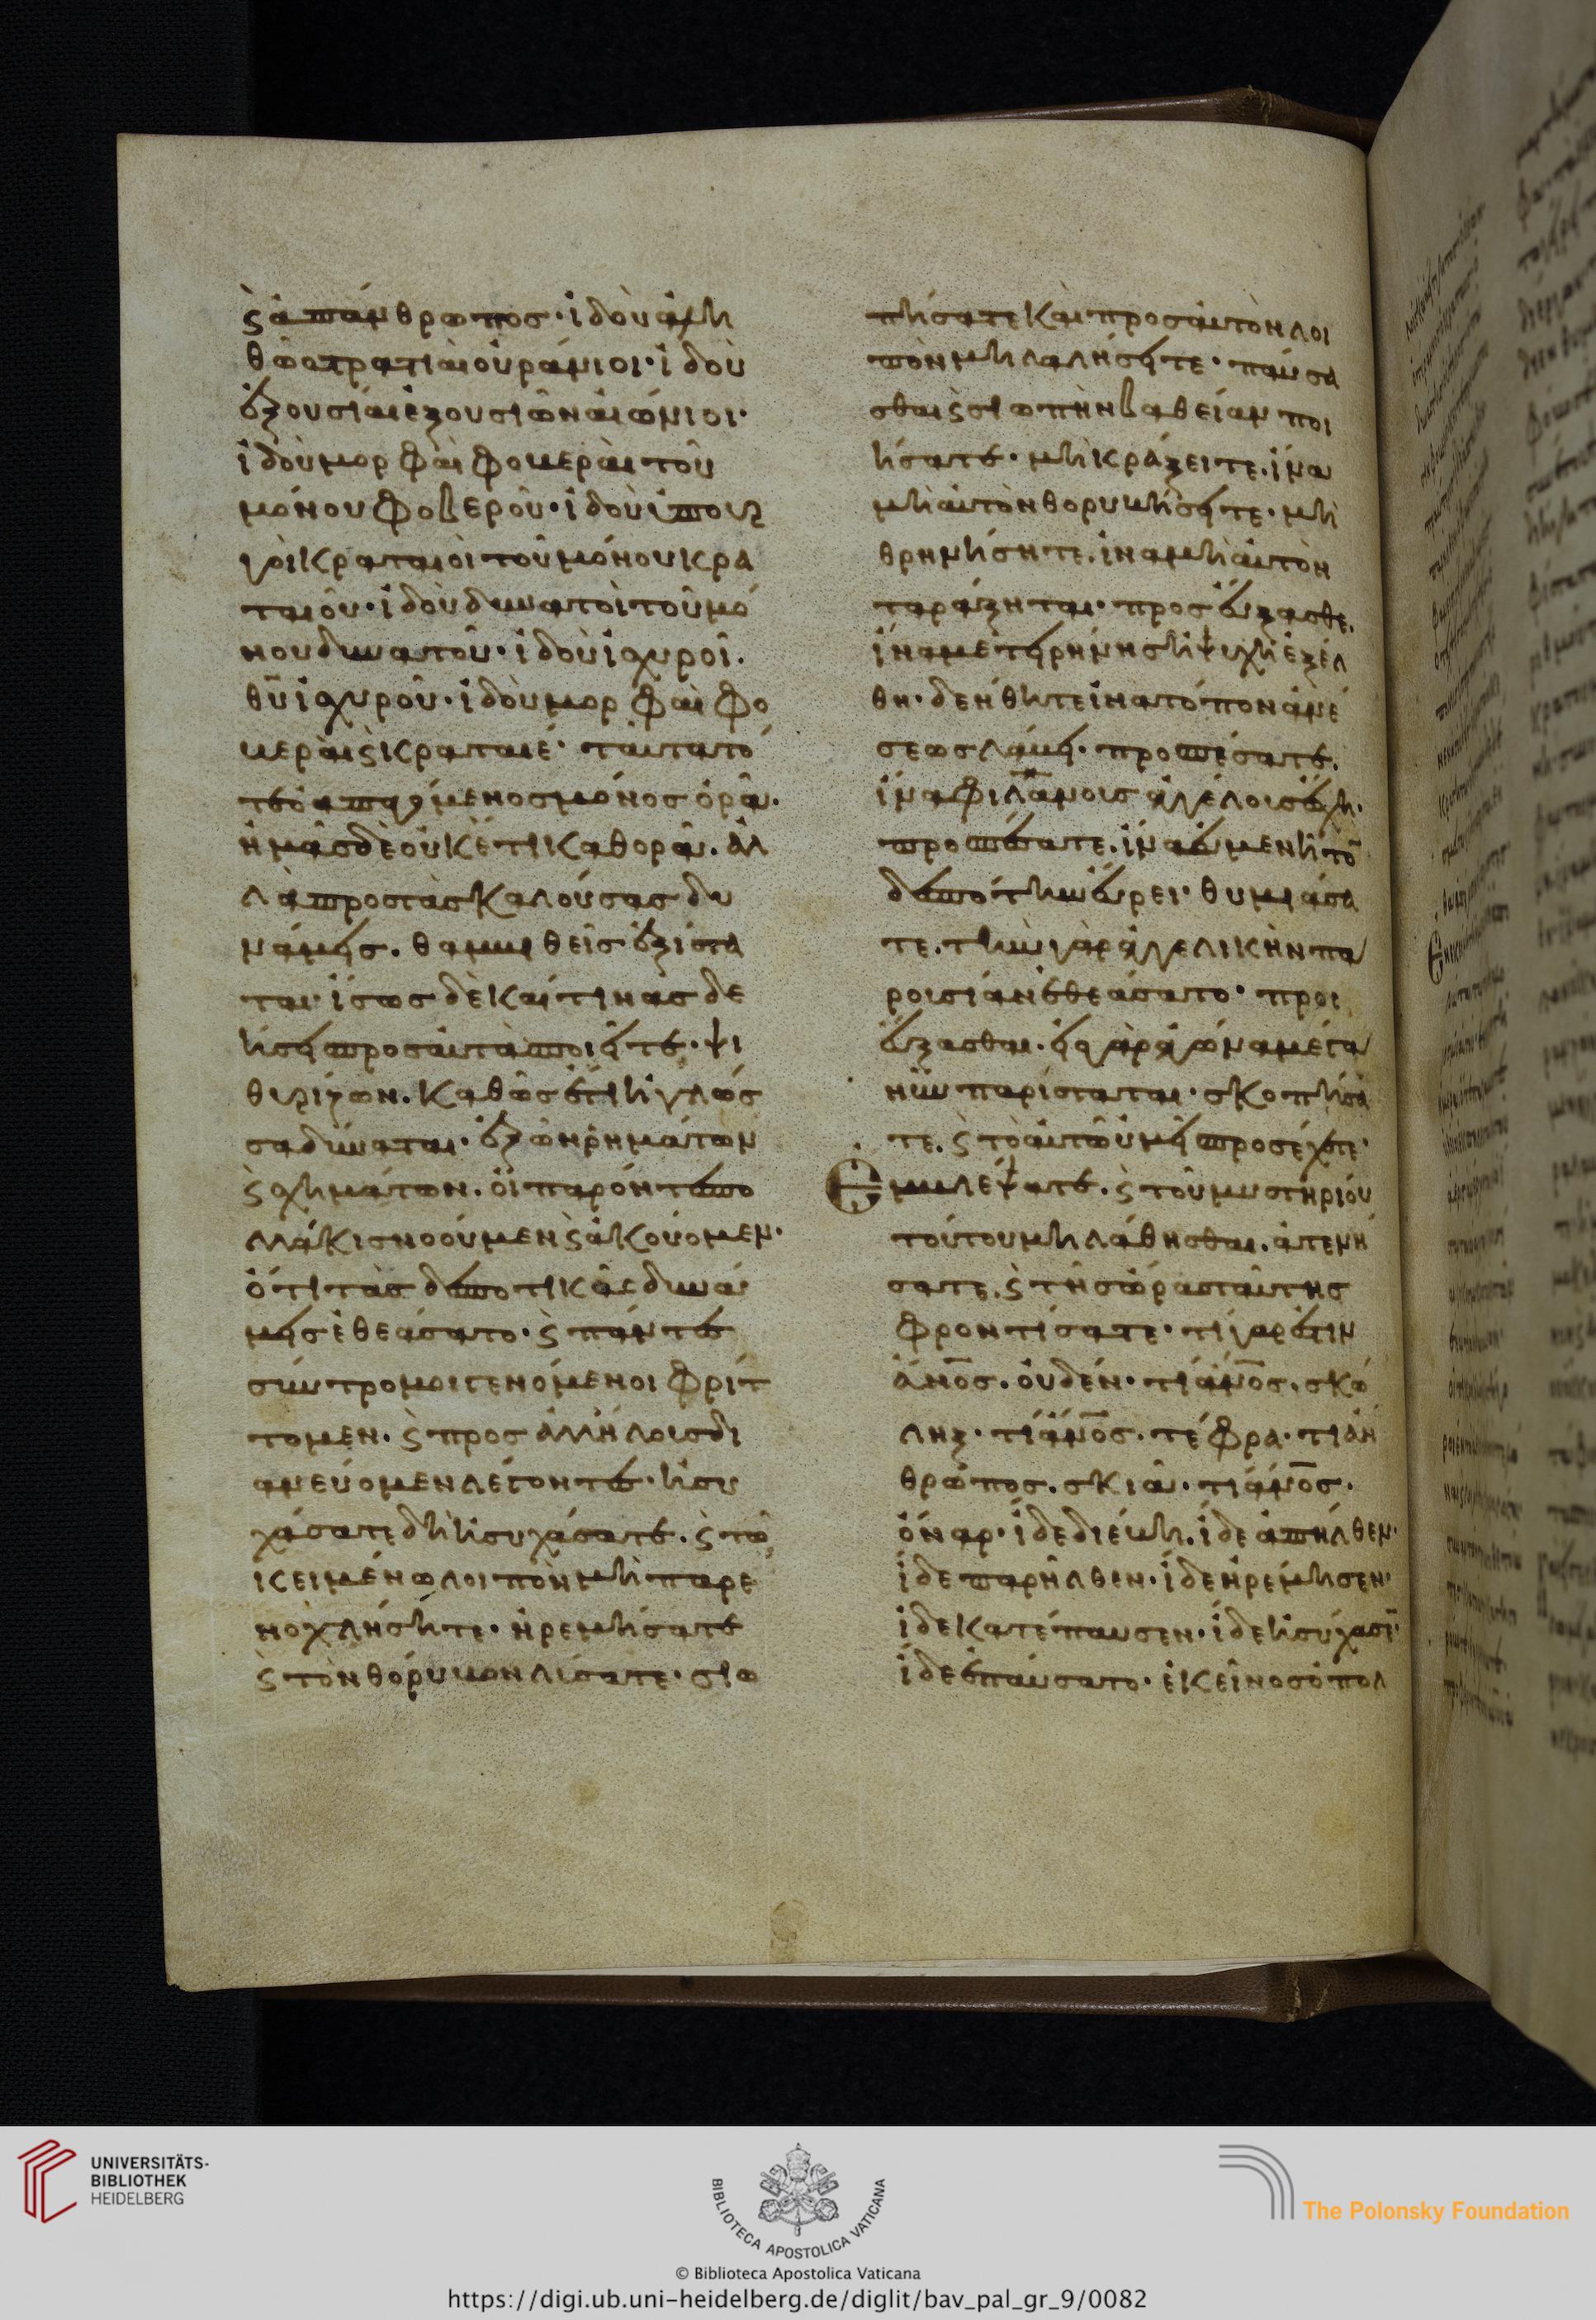 ϛ ἀπάνθρωπος· ἰδοὺ ἀλη
θῶς στρατιαὶ οὐράνιοι· ἰδοὺ
ἐξουσίαι ἐξουσιῶν αἰώνιοι·
ἰδοὺ μορφαὶ φοβεραὶ τοῦ
μόνου φοβεροῦ· ἰδοὺ
κραταιοὶ τοῦ μόνου κρα
ταιοῦ· ἰδοὺ δυνατοὶ τοῦ μό
νου δυνατοῦ· ἰδοὺ ἰσχυροὶ.
θυ ἰσχυροῦ· ἰδοὺ μορφαὶ φο
βεραὶ ϛ κραταιέ· ταῦτα τό
τε ὁ μενος μόνος ὁρᾶ.
ἡμᾶς δὲ οὐκέτι καθορᾶ. ἀλ
λὰ προς τὰς καλούσας δυ
νάμεις. θαμβηθεὶς ἐξίστα
ται· ἴσως δὲ καί τινας δε
ήσεις προς αὐτὰ ποιεῖται· ψι
θυρίζων. καθὼς ἔτι ἡ γλῶσ
σα δύναται· ἐξ ὧν ῥημάτων
ϛ σχημάτων. οἱ παρόντες πο
λλάκις νοοῦμεν ϛ ἀκούομεν·
ὅτι τὰς δεσποτικὰς δυνά
μεις ἐθεάσατο· ϛ πάντες
σύντρομοι γενόμενοι φρίτ
τομεν. ϛ προς ἀλλήλοις δι
ανεύομεν λέγοντες· ἡσυ
χάσατε δὴ ἡσυχάσατε. ϛ τῶ
κειμένω λοιπὸν μὴ παρε
νοχλήσητε· ἠρεμήσατε
ϛ τὸν θόρυβον λύσατε· σιω
πήσατε καὶ προς αὐτὸν λοι
πὸν μὴ λαλήσητε· παύσα
σθαι ϛ σιωπὴν βαθείαν ποι
ήσατε· μὴ κράζειτε. ἵνα
μὴ αὐτὸν θορυβήσητε· μὴ
θρηνήσητε. ἵνα μὴ αὐτὸν
ταράξηται· προσεύξασθε.
ἵνα μετ εἰρήνης ἡ ψυχὴ ἐξέλ
θη· δεήθητε ἵνα τόπον ἀνέ
σεως λάβη· προσπέσατε.
ἵνα φιλανοις ἀγγέλοις
προσπέσατε. ἵνα εὐμενῆ τὸ
δεσπότην εὕρει· θυμιάσα
τε. τὴν γὰρ ἀγγελικὴν πα
ρουσίαν ἐθεάσατο· προσ
εύξασθαι. εἰς γὰρ ἀγῶνα μέγα
νῦν παρίσταται· σκοπήσα
τε. ϛ τὸ αὐτῶ ὑμεῖς προσέχετε·
Εμβλέψατε. ϛ τοῦ μυστηρίου
τούτου μὴ λάθησθαι. ἀτενή
σατε. ϛ τῆς ὥρας ταύτης
φροντίσατε· τί γάρ ἐστιν
ἄνος. οὐδέν· τί ἄνος. σκώ
ληξ· τί ἄνος. τέφρα· τί ἄν
θρωπος. σκιά· τί ἄνος.
ὄναρ· ἴδε διέβη. ἴδε ἀπῆλθεν·
ἴδε παρῆλθεν· ἴδε ἠρέμησεν·
ἴδε κατέπαυσεν· ἴδε ἡσύχασε·
ἴδε ἐπαύσατο· ἐκεῖνος ὁ πολ
UNIVERSITÄTS-
BIBLIOTHEK
HEIDELBERG
BIBLIOTECA APOSTOLICA VATICANA
The Polonsky Foundation
© Biblioteca Apostolica Vaticana
https://digi.ub.uni-heidelberg.de/diglit/bav_pal_gr_9/0082